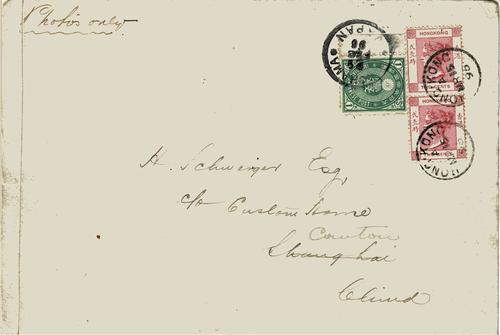 Photos only
HONGKONG
JAPAN
HONGKONG
CENTS
HONGKONG
HONGKONG
H. Schweiger Esq,
c/o Custom House
Canton
Shanghai
China